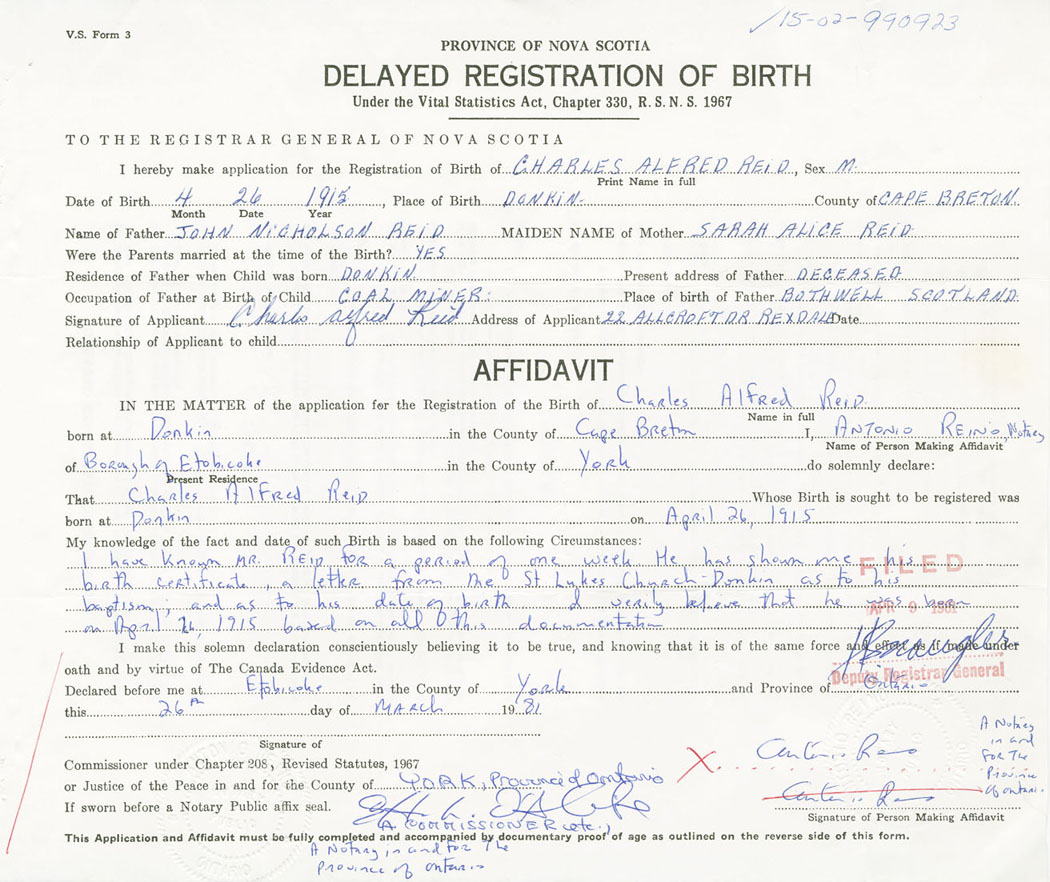 ✓15-02-990923
V.S. Form 3
PROVINCE OF NOVA SCOTIA
DELAYED REGISTRATION OF BIRTH
Under the Vital Statistics Act, Chapter 330, R. S. N. S. 1967
TO THE REGISTRAR GENERAL OF NOVA SCOTIA
I hereby make application for the Registration of Birth of CHARLES ALFRED REID, Sex M.
Print Name in full
Date of Birth 4 26 1915, Place of Birth DONKIN. County of CAPE BRETON.
Month Date Year
Name of Father JOHN NICHOLSON REID MAIDEN NAME of Mother SARAH ALICE REID
Were the Parents married at the time of the Birth? YES
Residence of Father when Child was born DONKIN. Present address of Father DECEASED
Occupation of Father at Birth of Child COAL MINER. Place of birth of Father BOTHWELL SCOTLAND.
Signature of Applicant Charles Alfred Reid Address of Applicant 22 ALLCROFT DR REXDALE Date
Relationship of Applicant to child
AFFIDAVIT
IN THE MATTER of the application for the Registration of the Birth of Charles Alfred Reid
Name in full
born at Donkin in the County of Cape Breton I, ANTONIO REINO, Notary
Name of Person Making Affidavit
of Borough of Etobicoke in the County of York do solemnly declare:
Present Residence
That Charles Alfred Reid Whose Birth is sought to be registered was
born at Donkin on April 26, 1915
My knowledge of the fact and date of such Birth is based on the following Circumstances:
I have known MR. REID for a period of one week He has shown me his
FILED
birth certificate, a letter from the St Lukes Church-Donkin as to his
baptism; and as to his date of birth I verily believe that he was born
APR 9 1981
on April 26, 1915 based on all of this documentation
I make this solemn declaration conscientiously believing it to be true, and knowing that it is of the same force and effect as if made under
oath and by virtue of The Canada Evidence Act.
Deputy Registrar General
Declared before me at Etobicoke in the County of York and Province of Ontario
this 26th day of MARCH 1981
Signature of
Commissioner under Chapter 208, Revised Statutes, 1967
or Justice of the Peace in and for the County of YORK, Province of Ontario
If sworn before a Notary Public affix seal.
(A COMMISSIONER etc.,)
A Notary in and for The
Province of Ontario
X Antonio Reino
Antonio Reino
A Notary
in and
FOR The
Province
of Ontario.
Signature of Person Making Affidavit
This Application and Affidavit must be fully completed and accompanied by documentary proof of age as outlined on the reverse side of this form.